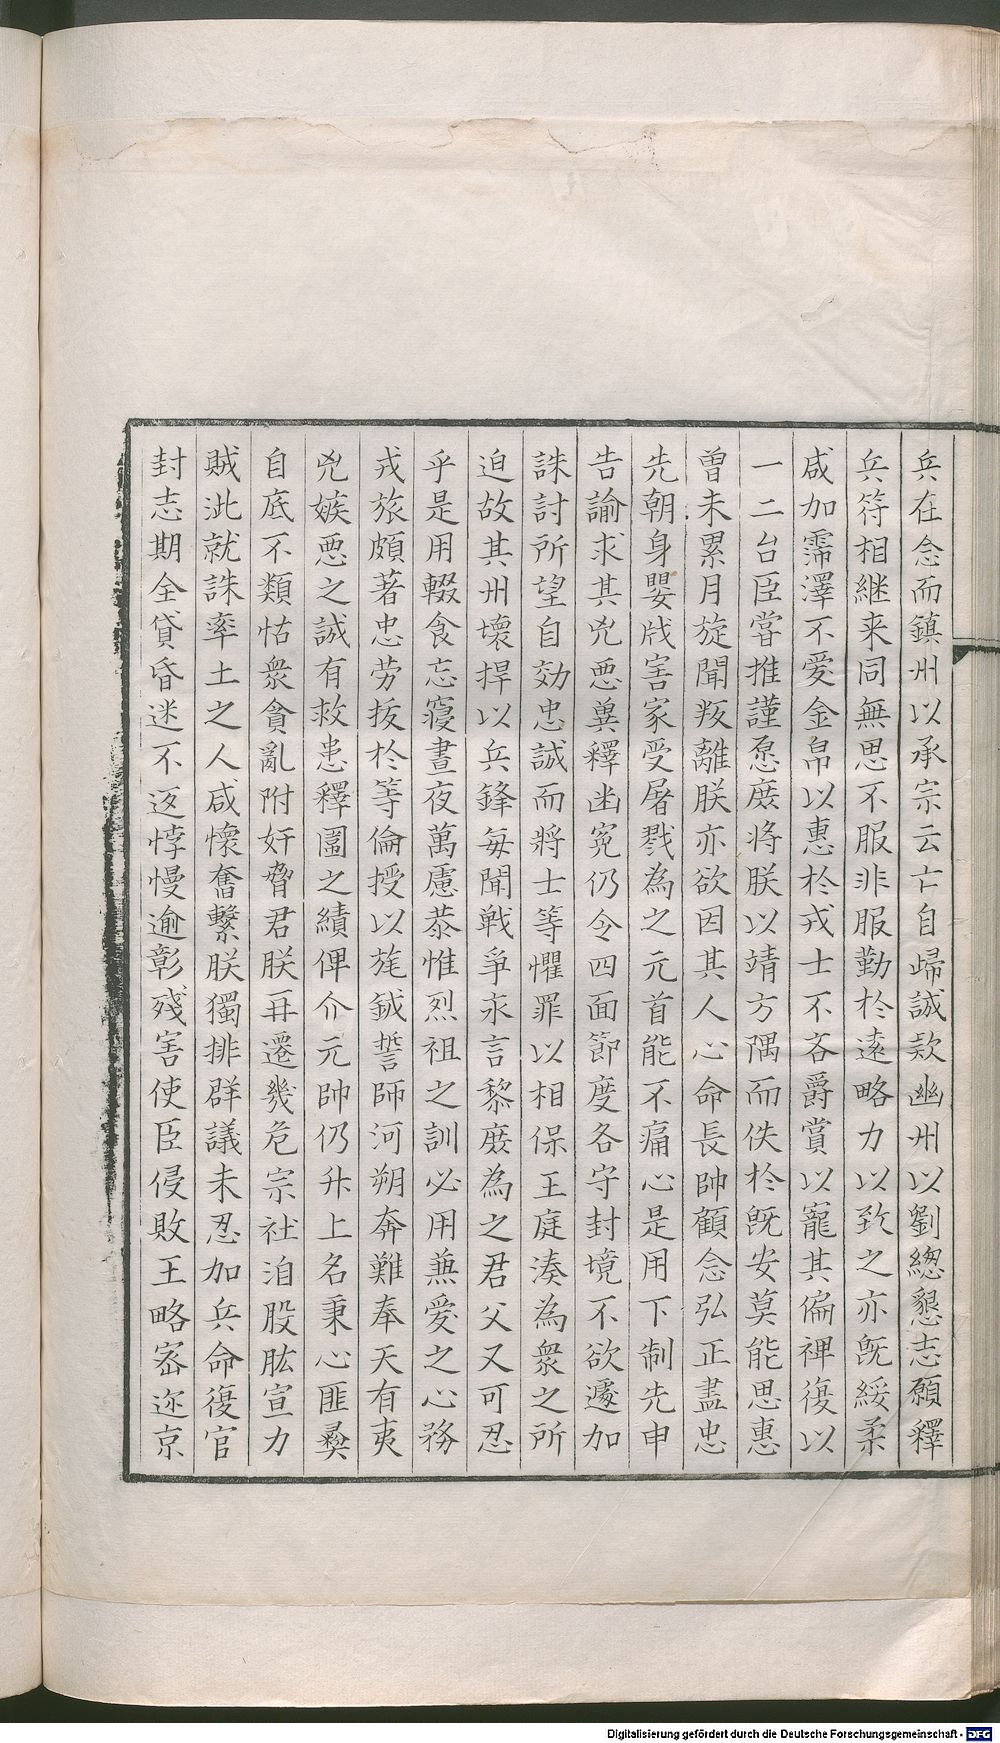 兵在念而鎮州以承宗云亡自歸誠款幽州以劉緫懇志願釋
兵符相継来同無思不服非服勤於遠略力以致之亦既綏柔
咸加霈澤不愛金帛以惠於戎士不吝爵賞以寵其偏裨復以
一二台臣嘗推謹愿庻将朕以靖方隅而佚於既安莫能思惠
曽未累月旋聞叛離朕亦欲因其人心命長帥顧念弘正盡忠
先朝身嬰戕害家受屠戮為之元首能不痛心是用下制先申
告諭求其兇惡兾釋幽冤仍令四面節度各守封境不欲遽加
誅討所望自効忠誠而將士等懼罪以相保王庭湊為衆之所
迫故其州壞捍以兵鋒每聞戦爭永言黎庻為之君父又可忍
乎是用輟食忘寢晝夜萬慮恭惟烈祖之訓必用兼愛之心務
戎旅頗著忠労拔於等倫授以旄鉞誓師河朔奔難奉天有夷
兇嫉惡之誠有救患釋圍之績俾介元帥仍升上名秉心匪彜
自底不類怙衆貪亂附奸脅君朕再遷幾危宗社洎股肱宣力
賊泚就誅率土之人咸懷奮擊朕獨排群議未忍加兵命復官
封志期全貸昏迷不返悖慢逾彰殘害使臣侵敗王略宻迩京
Digitalisierung gefördert durch die Deutsche Forschungsgemeinschaft - DFG